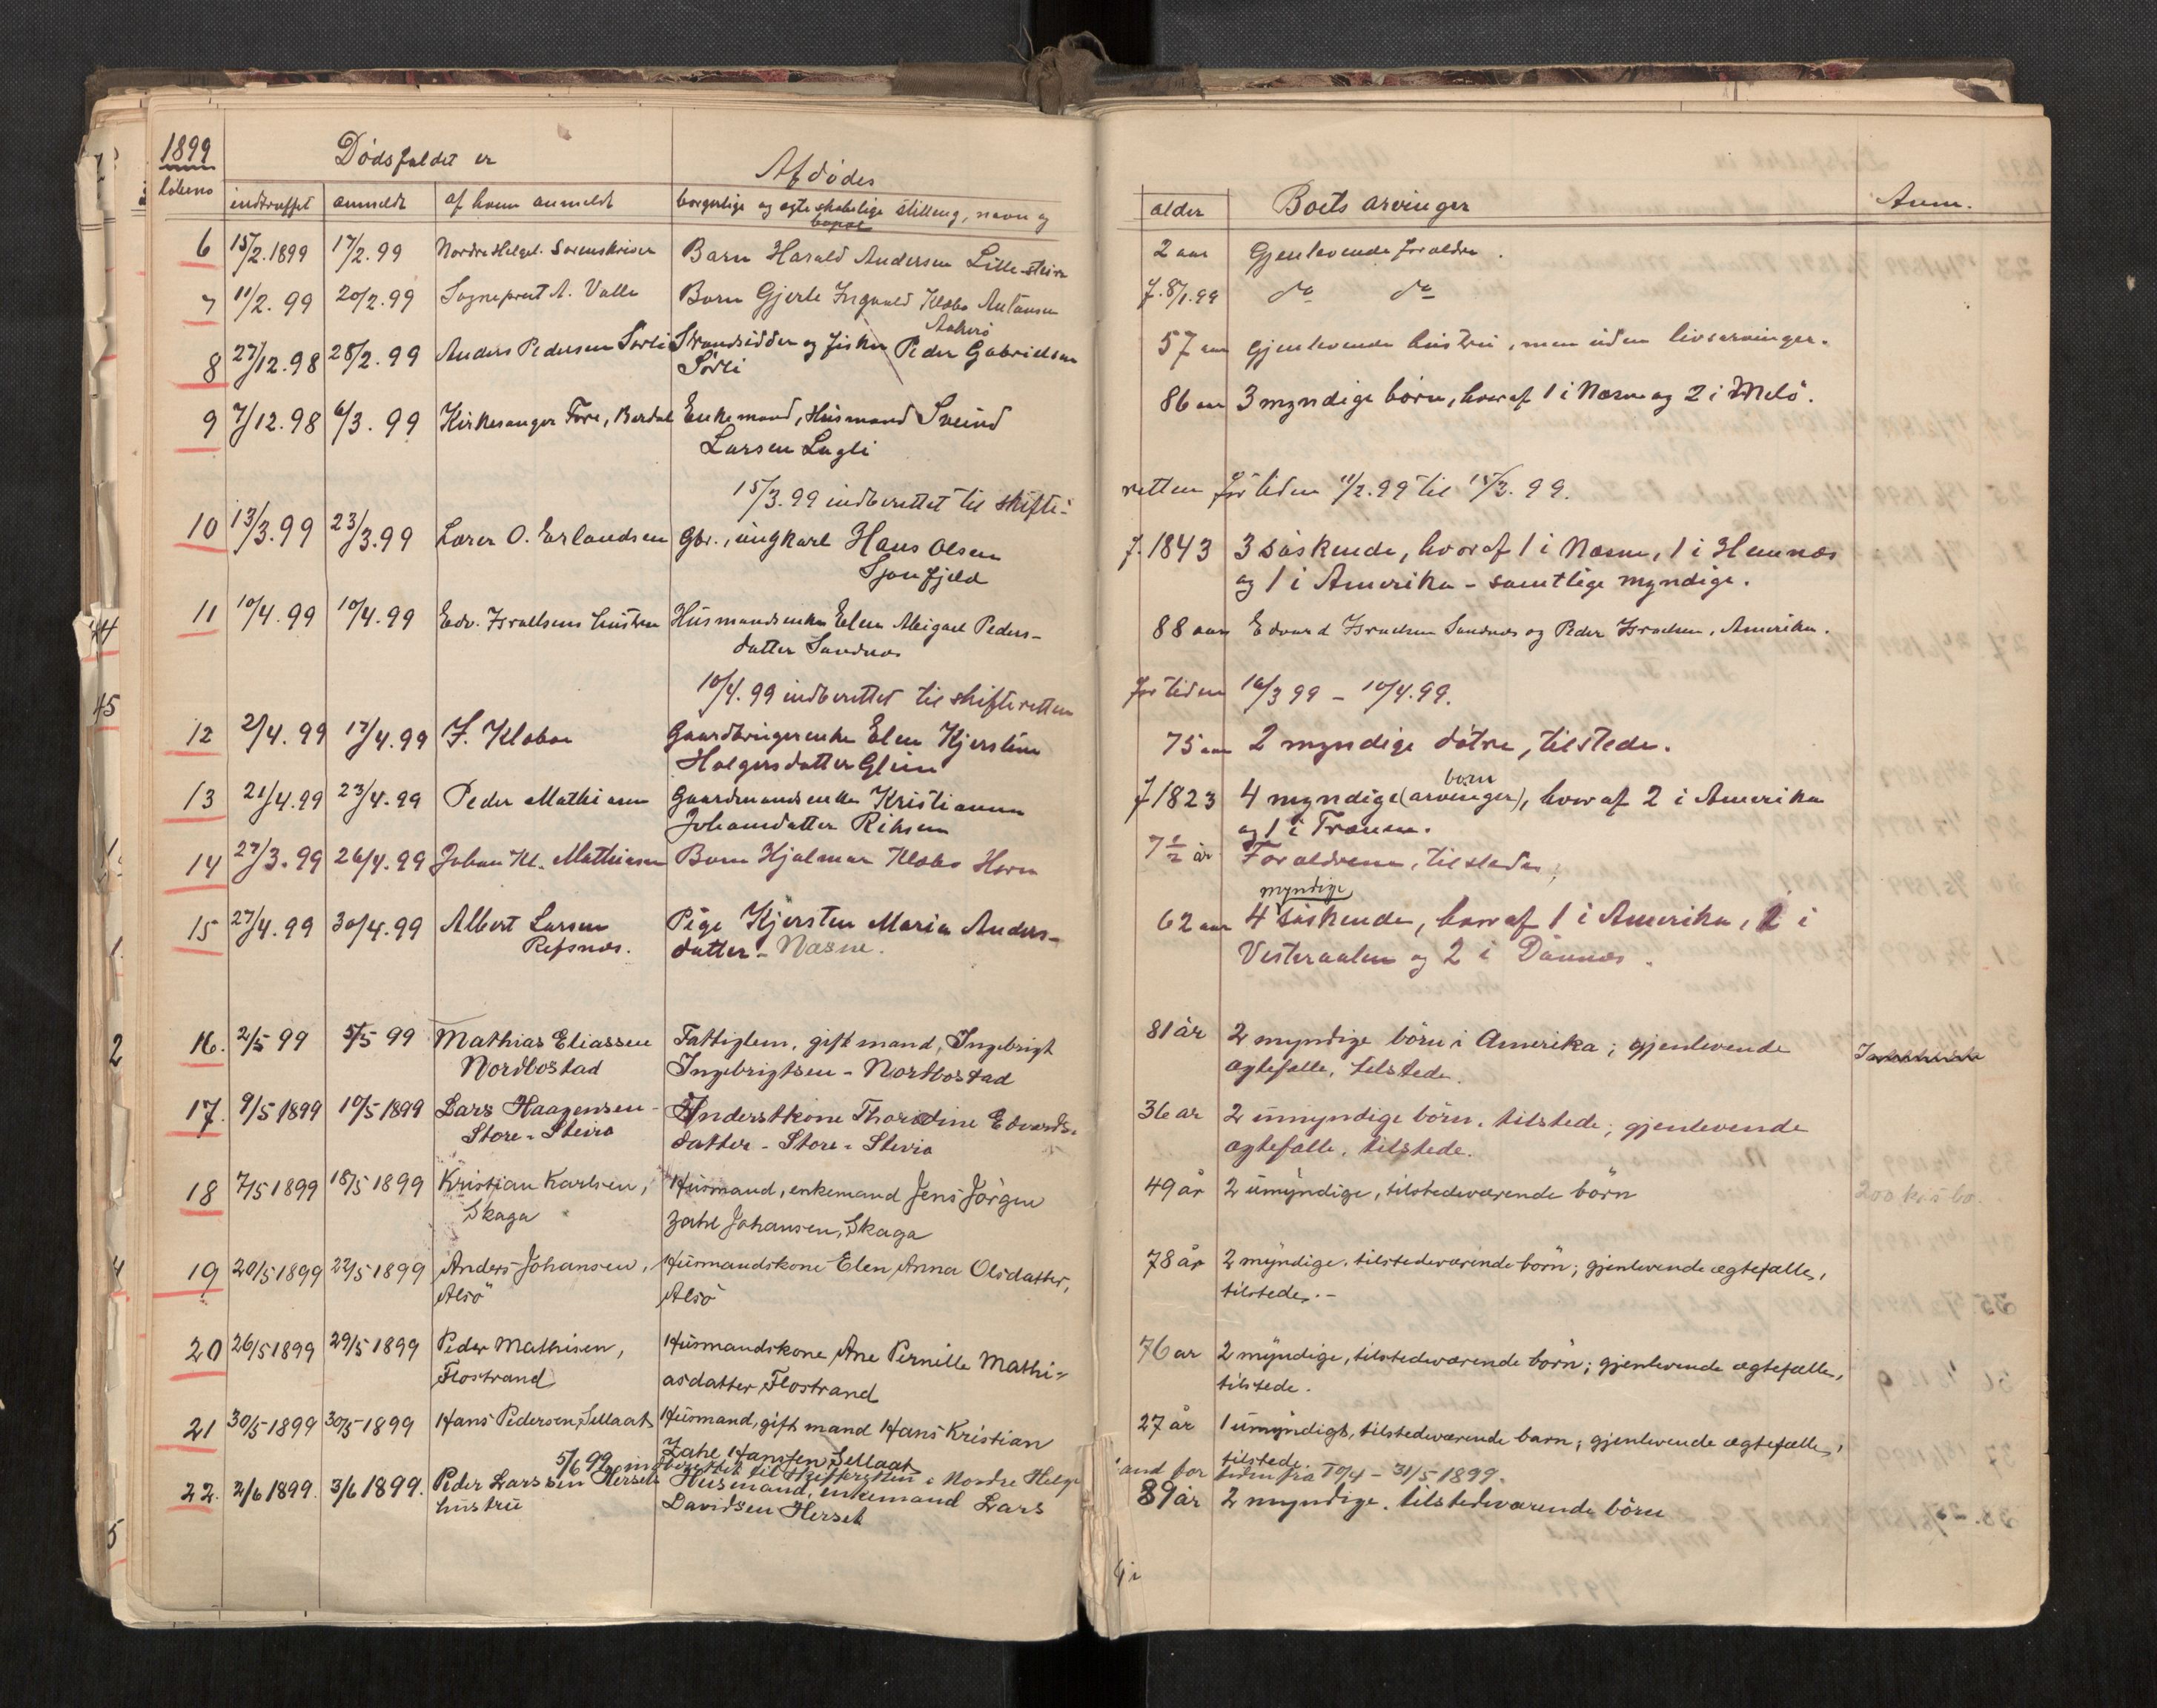 1899
Dödsfaldet er
Afdödes
löbeno indtruffet anmeldt af hvem anmeldt borgerlige og egteskabelige stilling, navn og
bopæl
alder Boets arvinger Anm.
6 15/2.1899 17/2.99 Nordre Helgel. Sorenskriver Barn Harald Andersen Lille-steira
2 aar Gjenlevende forældre.
7 11/2.99 20/2.99 Sogneprest A. Valle Barn Gjerle Ingvald Klæbo Antonsen
f. 8/1.99 do do
8 27/12.98 28/2.99 Anders Pedersen Sørli Strandsidder og fisker Peder Gabrielsen
Sørli
57 aar gjenlevende hustru, men uden livsarvinger.
9 7/12.98 6/3.99 Kirkesanger Fore, Bardal Enkemand, Husmand Sveind
Larsen Lugli
86 aar 3 myndige börn, hvoraf 1 i Næsne og 2 i Melö.
15/3.99 indberettet til skifte-
retten for tiden 11/2.99 til 15/3.99.
10 13/3.99 23/3.99 Lærer O. Erlandsen Gbr., ungkarl Hans Olsen
Sjonfjeld
f. 1843 3 söskende, hvoraf 1 i Næsne, 1 i Hemnæs
og 1 i Amerika - samtlige myndige.
11 10/4.99 10/4.99 Edv. Israelsens hustru Husmandsenke Elen Abigael Peders-
datter Sandnæs
88 aar Edvard Israelsen Sandnæs og Peder Israelsen, Amerika.
10/4.99 indberettet til skifteretten
for tiden 16/3 99 - 10/4.99.
12 2/4.99 17/4.99 F. Klæboe Gaardbrugerenke Elen Kjerstine
Holgersdatter Glein
75 aar 2 myndige döttre, tilstede.
13 21/4.99 23/4.99 Peder Mathiasen Gaardmandsenke Kristianna
Johansdatter Riksem
börn
f 1823 4 myndige (arvinger), hvoraf 2 i Amerika
og 1 i Trænen.
14 27/3.99 26/4.99 Johan Kl. Mathiasen Barn Hjalmar Klæbo Horn
7½ år Forældrene, tilstede,
myndige
15 27/4.99 30/4.99 Albert Larsen
Refsnæs.
Pige Kjersten Maria Anders-
datter - Næsne.
62 aar 4 söskende, hvoraf 1 i Amerika, 1 i
Vesteraalen og 2 i Dönnæs.
16. 2/5 99 5/5 99 Mathias Eliassen
Nordbostad
Fattiglem, gift mand, Ingebrigt
Ingebrigtsen - Nordbostad
81 år 2 myndige börn i Amerika; gjenlevende
ægtefælle, tilstede.
17. 9/5 1899 10/5 1899 Lars Haagensen -
Store-Steira
Inderstkone Thorådine Edvards-
datter - Store-Steira
36 ar 2 umyndige börn, tilstede; gjenlevende
ægtefælle, tilstede.
18 7/5 1899 18/5 1899 Kristian Karlsen,
Skaga
Husmand, enkemand Jens Jörgen
Zahl Johansen, Skaga
49 år 2 umyndige, tilstedeværende börn
200 kr i bo.
19 20/5 1899 22/5 1899 Anders Johansen,
Alsö
Husmandskone Elen Anna Olsdatter,
Alsö
78 år 2 myndige, tilstedeværende börn; gjenlevende ægtefælle,
tilstede. -
20 26/5 1899 29/5 1899 Peder Mathisen,
Flostrand
Husmandskone Ane Pernille Mathi-
asdatter, Flostrand
76 ar 2 myndige, tilstedeværende börn; gjenlevende ægtefælle,
tilstede.
21 30/5 1899 30/5 1899 Hans Pedersen, Sellaat Husmand, gift mand Hans Kristian
Zahl Hansen, Sellaat
27 år 1 umyndigt, tilstedeværende barn; gjenlevende ægtefælle,
tilstede.
5/6 99 indberettet til Skifteretten i Nordre Helge
land for tiden fra 10/4 - 31/5 1899.
22. 2/6 1899. 3/6 1899. Peder Larssen Hersets
hustru
Husmand, enkemand Lars
Davidsen Herset
89 år 2 myndige, tilstedeværende börn